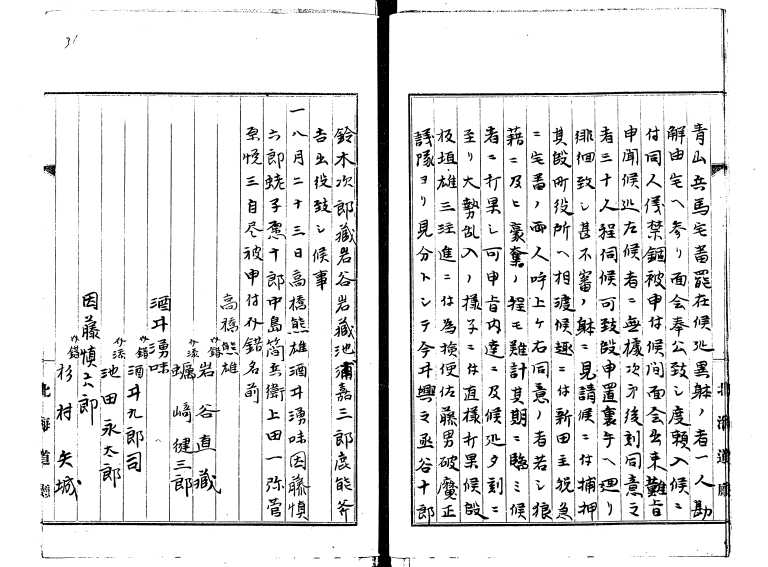 青山兵馬宅蓄罷在候処異躰ノ者一人勘
解由宅ヘ参リ面会奉公致シ度頼入候ニ
付同人儀禁錮被申付候間面会出来難旨
申聞候処左候者ニ無據次第後刻同意之
者三十人程伺候可致段申置裏手ヘ廻リ
徘徊致シ甚不審ノ躰ニ見請候ニ付捕押
其段町役所ヘ相渡候趣ニ付新田主税急
ニ宅番ノ両人呼上ケ右同意ノ者若シ狼
藉ニ及ヒ豪奪ノ程モ難計其期ニ臨ミ候
者ニ打果シ可申旨内達ニ及候処夕刻ニ
至リ大勢乱入ノ様子ニ付直様打果候段
板垣雄三注進ニ付為検使佐藤男破魔正
議隊ヨリ見分トシテ今井興之丞谷十郎
鈴木次郎藏岩谷岩藏池浦嘉三郎鹿能斧
吉出役致シ候事
一八月二十三日高橋熊雄酒井湧味因藤慎
六郎蛯子悳十郎中島筒兵衛上田一弥菅
原悦三自尽被申付介錯名前
高橋熊雄
介錯 岩谷直藏
介添 蠣崎健三郎
酒井湧味
介錯 酒井九郎司
介添 池田永太郎
因藤慎六郎
介錯 杉村矢城
北海道廳
北海道廳
31